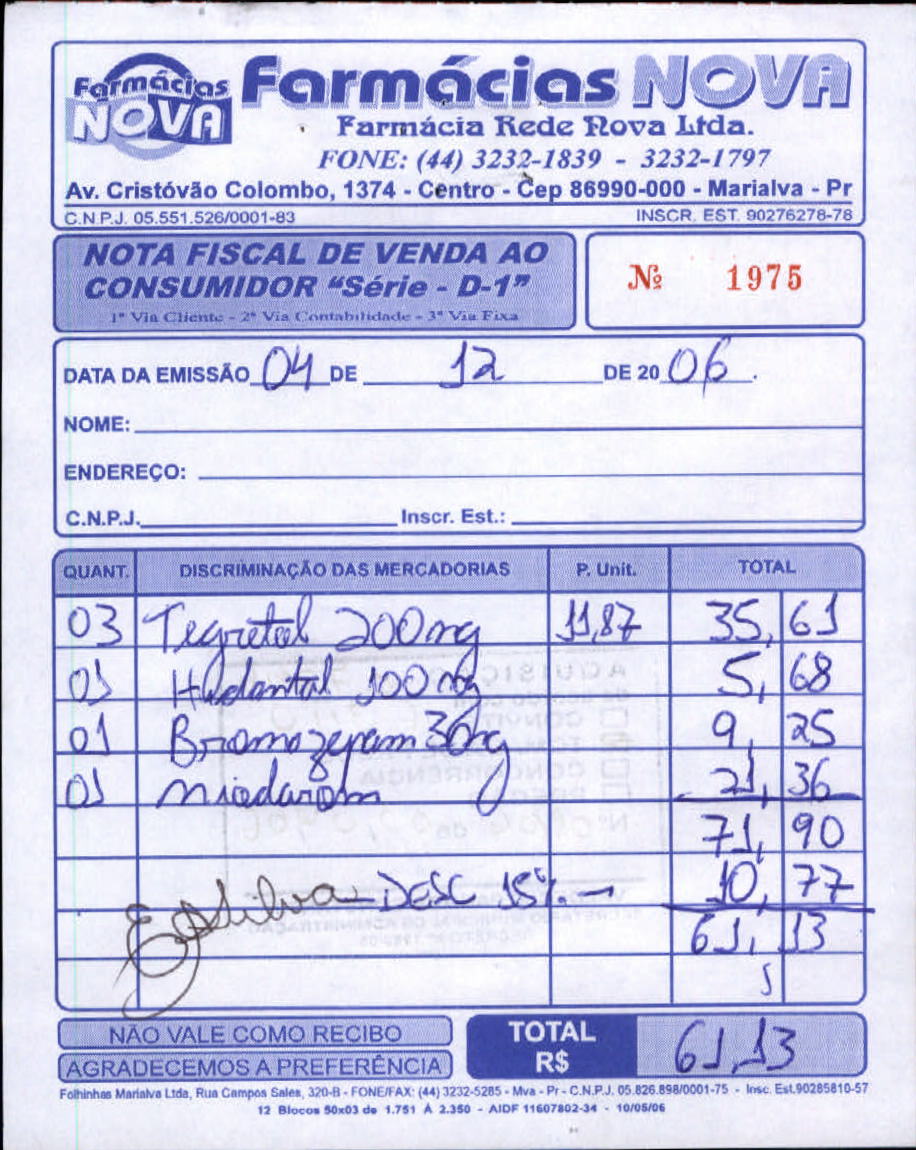 Farmácias NOVA
Farmácias NOVA
Farmácia Rede Nova Ltda.
FONE: (44) 3232-1839 - 3232-1797
Av. Cristóvão Colombo, 1374 - Centro - Cep 86990-000 - Marialva - Pr
C.N.P.J. 05.551.526/0001-83 INSCR. EST. 90276278-78
NOTA FISCAL DE VENDA AO
CONSUMIDOR "Série - D-1"
1ª Via Cliente - 2ª Via Contabilidade - 3ª Via Fixa
Nº 1975
DATA DA EMISSÃO 04 DE 12 DE 20 06.
NOME:
ENDEREÇO:
C.N.P.J. Inscr. Est.:
QUANT. DISCRIMINAÇÃO DAS MERCADORIAS P. Unit. TOTAL
03 Tegretol 200mg 11,87 35,61
01 Hidantal 100mg 5,68
01 Bromazepam 9,25
01 21,36
71,90
DESC 15% 10,77
61,13
NÃO VALE COMO RECIBO
AGRADECEMOS A PREFERÊNCIA
TOTAL
R$ 61,13
Folhinhas Marialva Ltda, Rua Campos Sales, 320-B - FONE/FAX: (44) 3232-5285 - Mva - Pr - C.N.P.J. 05.826.898/0001-75 - Insc. Est.90285810-57
12 Blocos 50x03 de 1.751 A 2.350 - AIDF 11607802-34 - 10/05/06